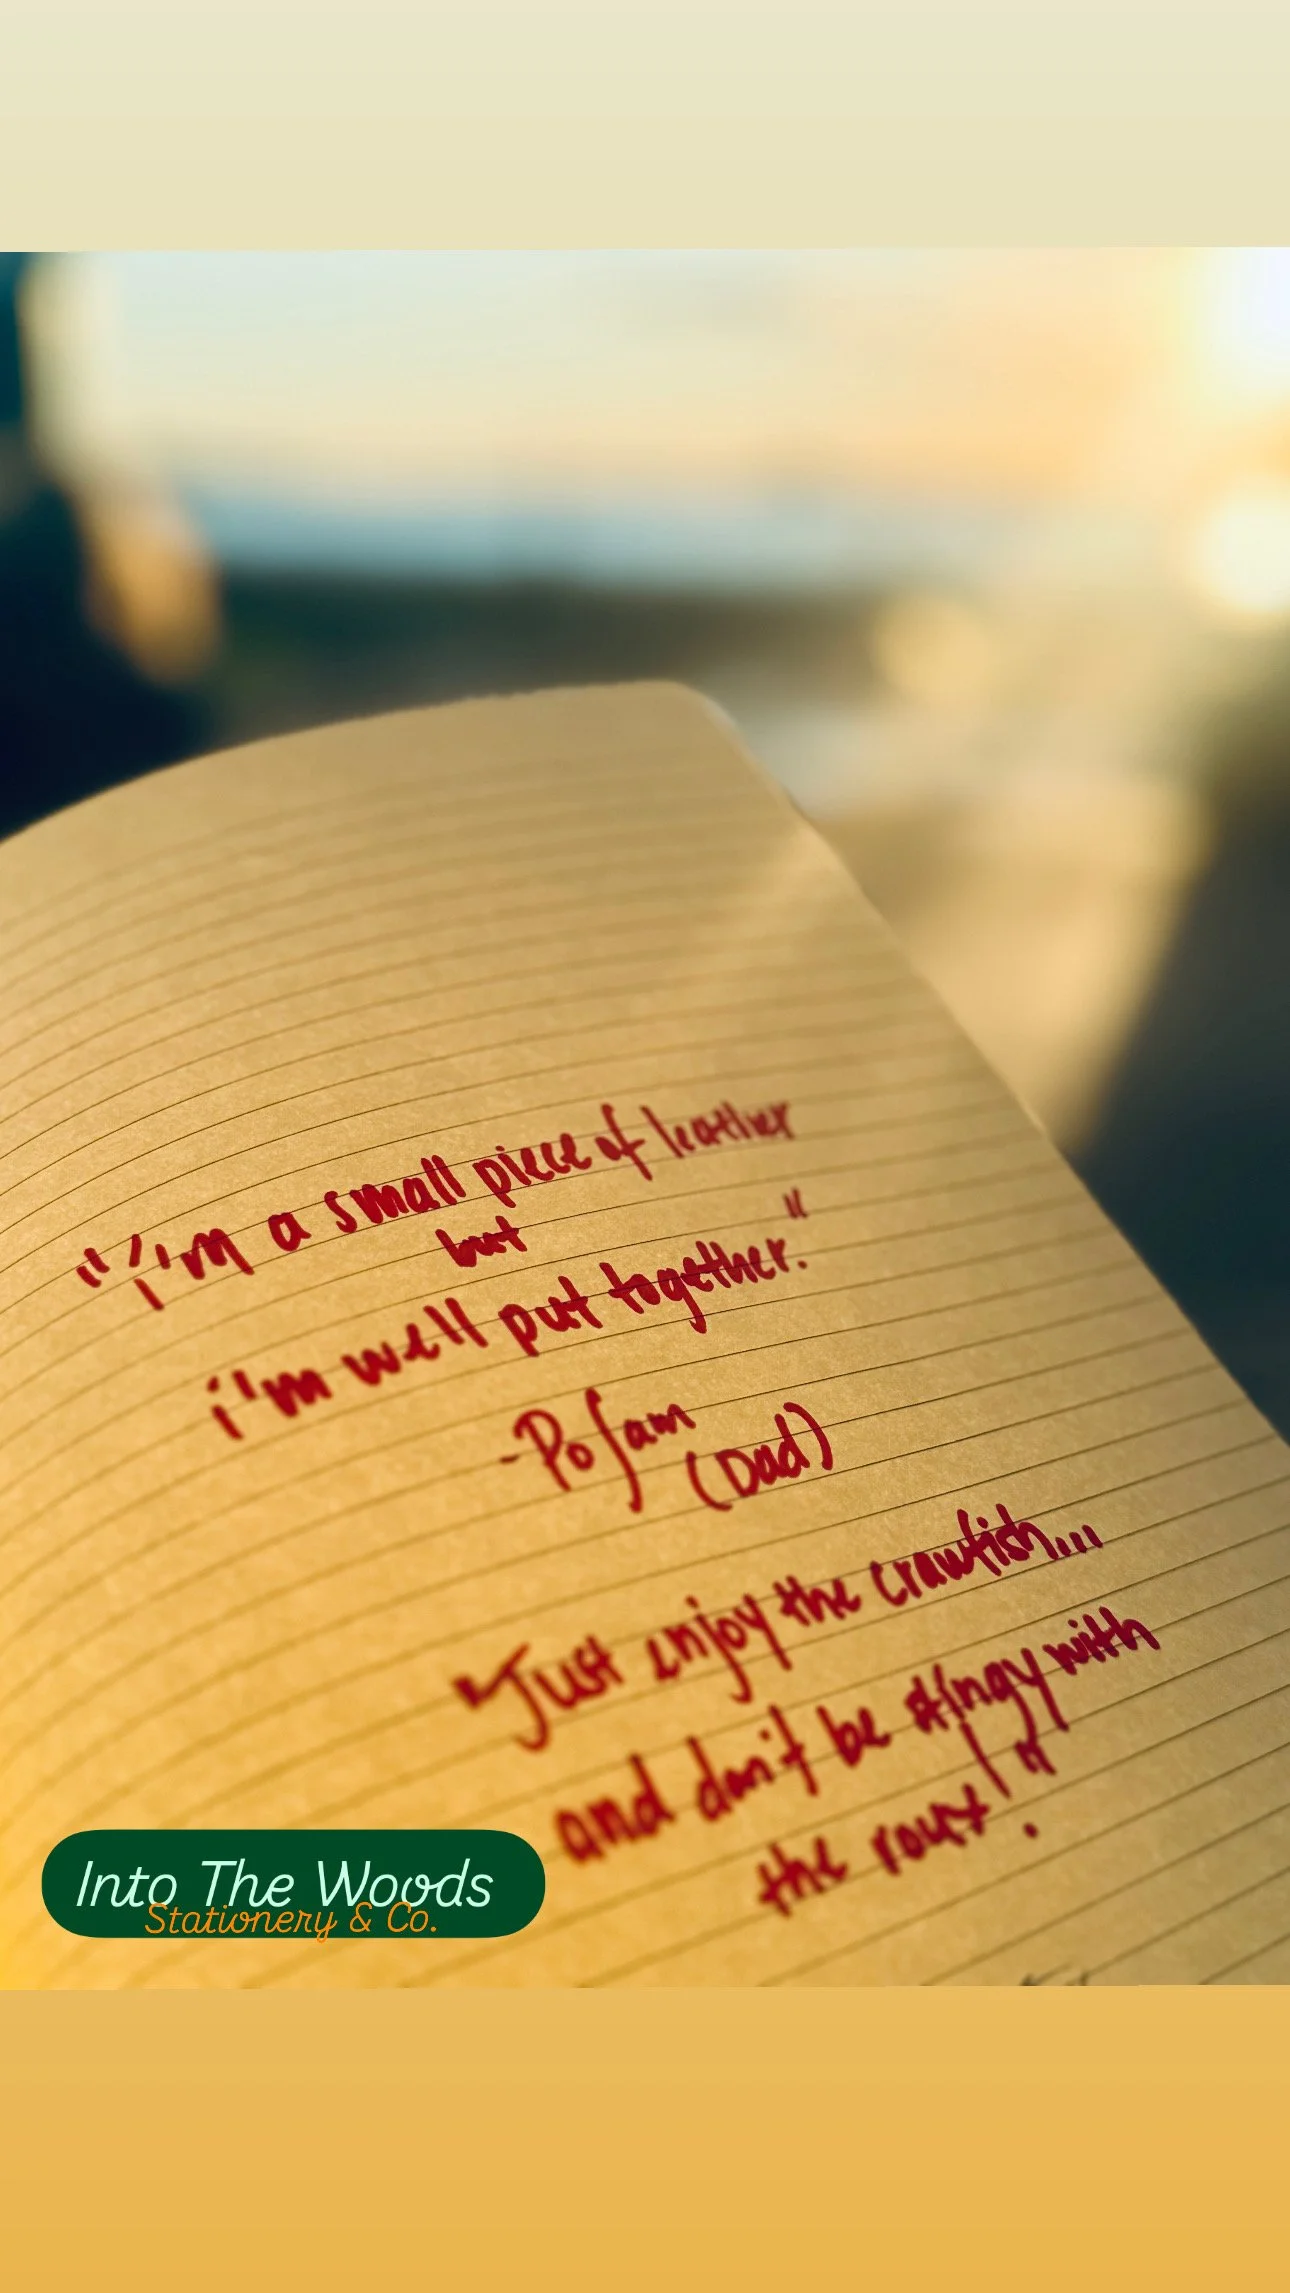 "i'm a small piece of leather
but
i'm well put together."
-Po Sam
(Dad)
"Just enjoy the crawfish...
and don't be stingy with
the roux!"
Into The Woods
Stationery & Co.